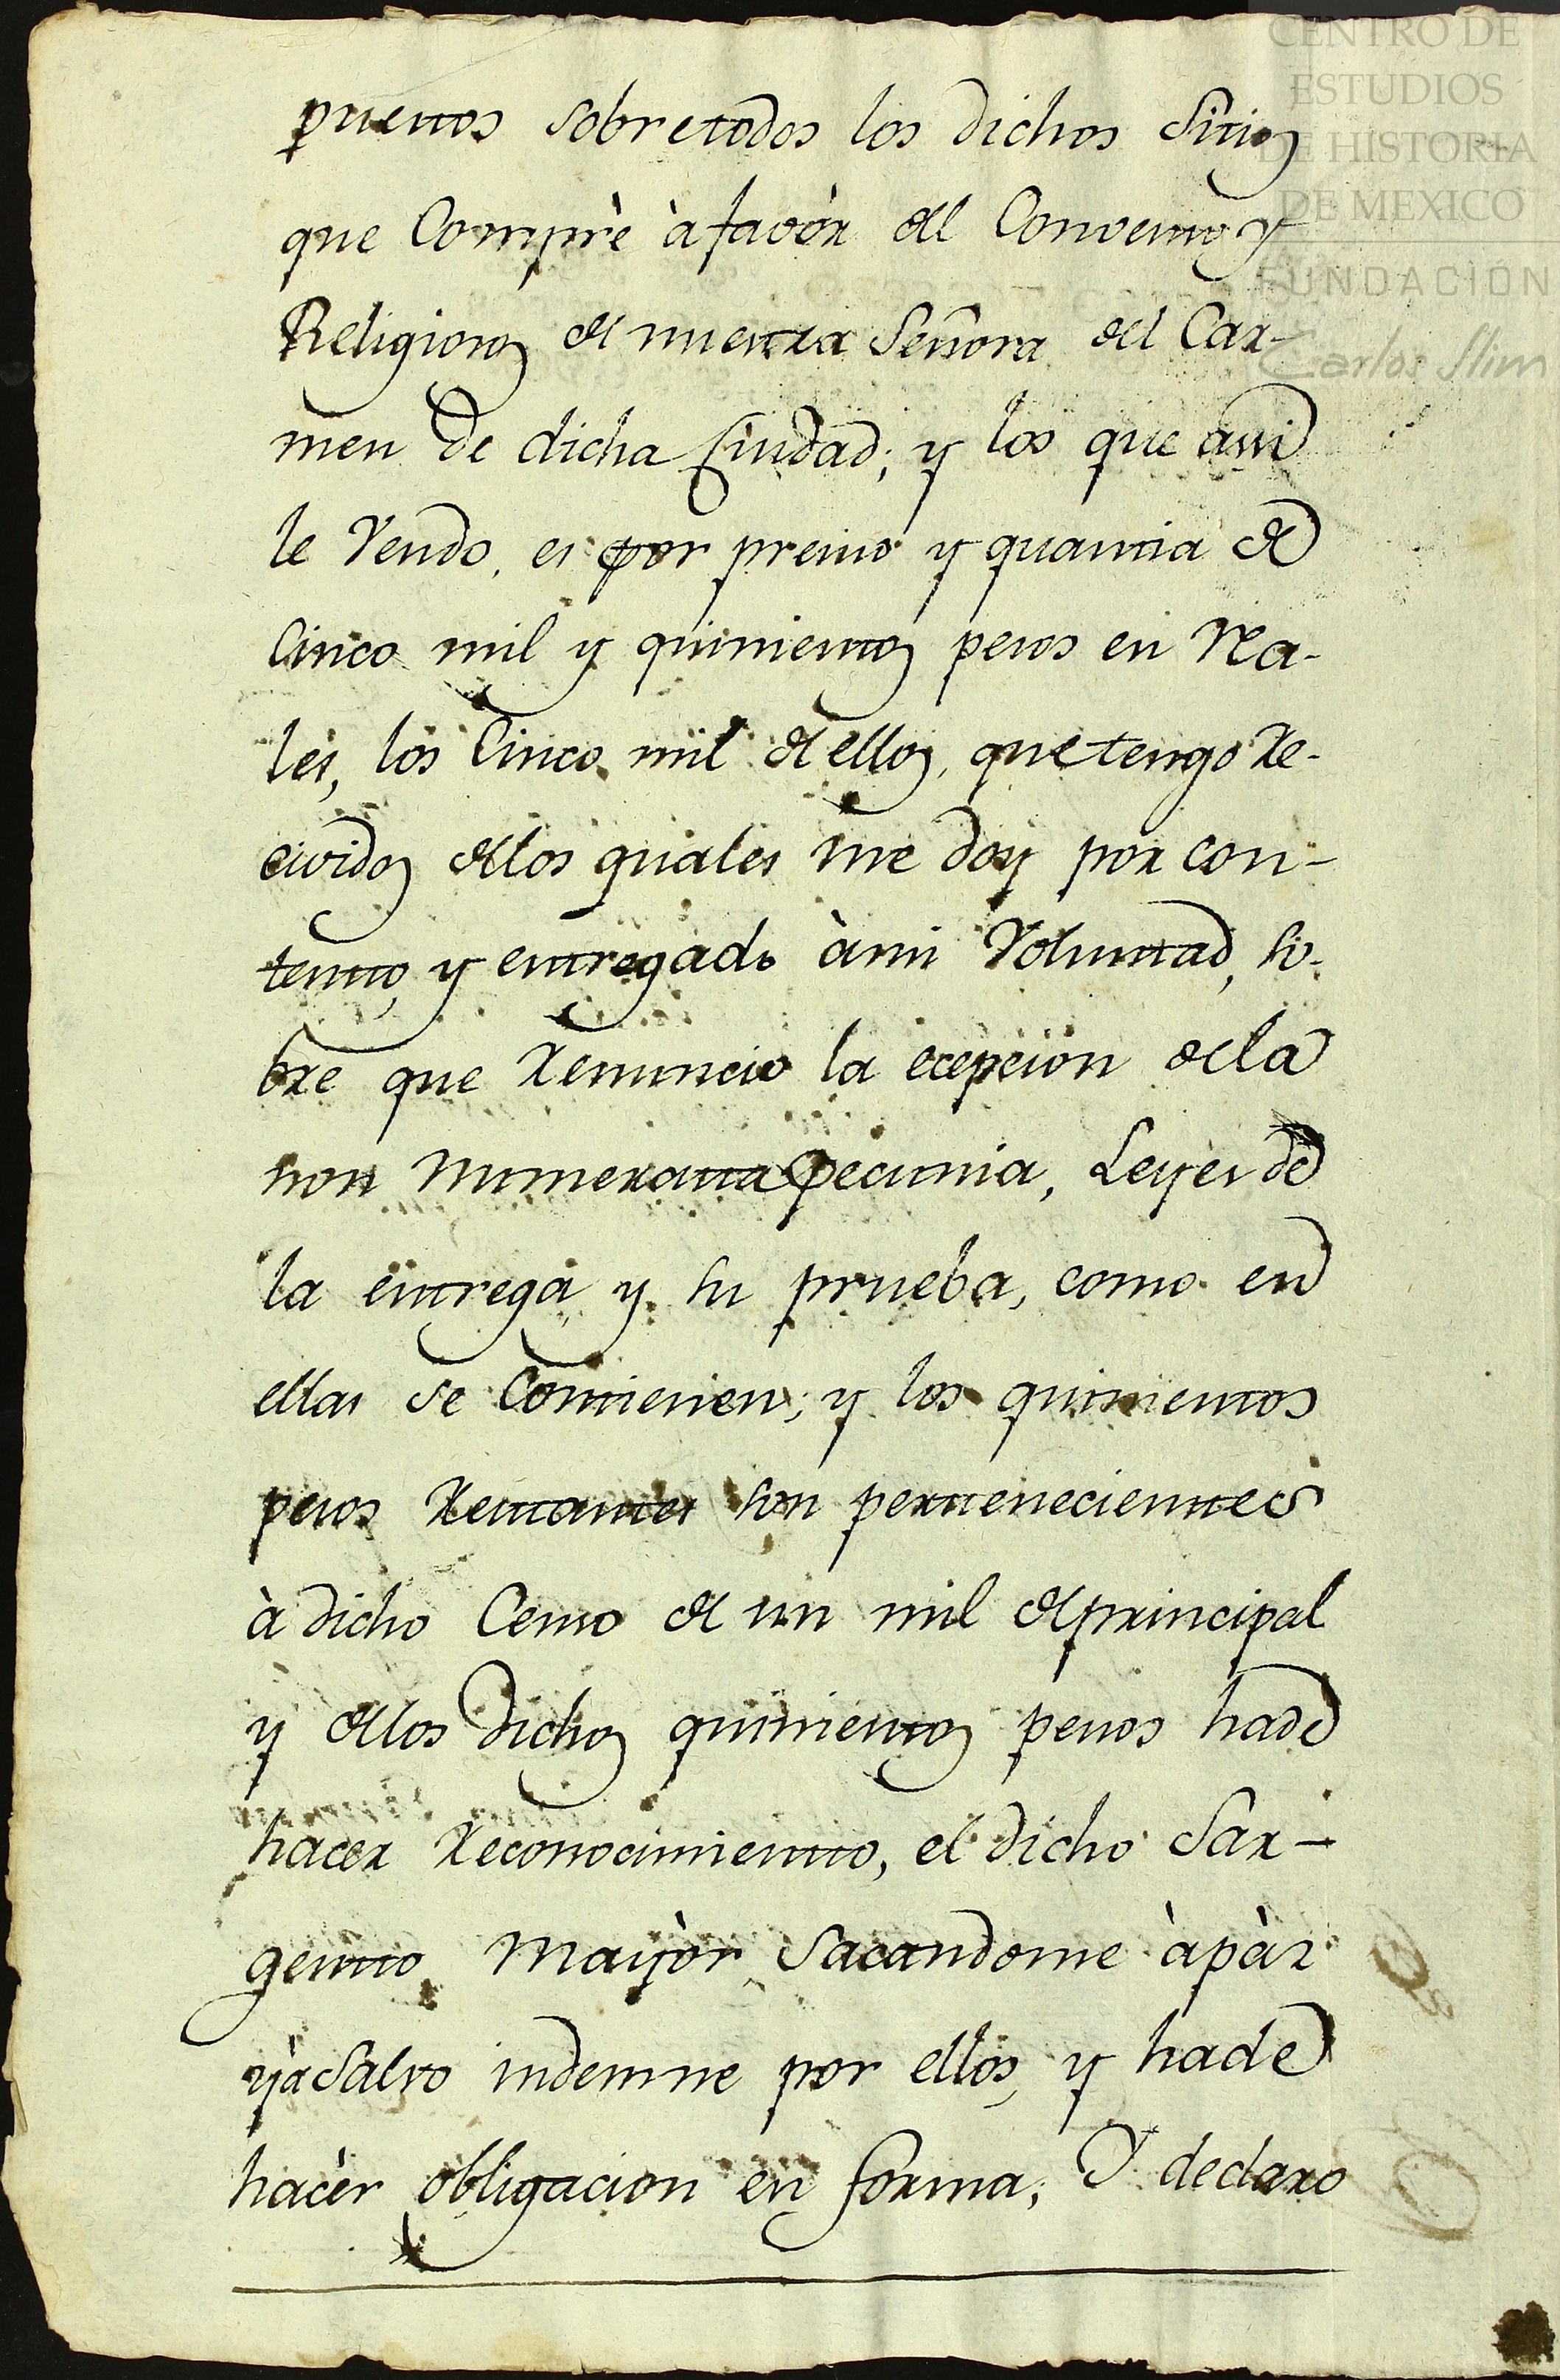 CENTRO DE
ESTUDIOS
DE HISTORIA
DE MEXICO
FUNDACIÓN
Carlos Slim
puestos sobre todos los dichos Sitios
que Comprè à favòr del Convento, y
Religiosos de nuestra Señora del Car-
men de dicha Ciudad; y los que assi
le Vendo, es por presio y quantia de
Cinco mil y quinientos pesos en Rea-
les, los Cinco mil de ellos, que tengo Re-
civido, de los quales me doy por con-
tento, y entregado à mi Voluntad, so-
bre que Renuncio la ecepcion de la
non numerata pecunia, Leyes de
la entrega y su prueba, como en
ellas se Contienen; y los quinientos
pesos Restantes son pertenecientes
à dicho Censo de un mil de principal
y de los dichos quinientos pesos hade
hacer Reconocimiento, el dicho Sar-
gento Mayòr Sacandome à pàz
yà Salvo indemne por ellos, y hade
hacèr obligacion en forma; Y declaro